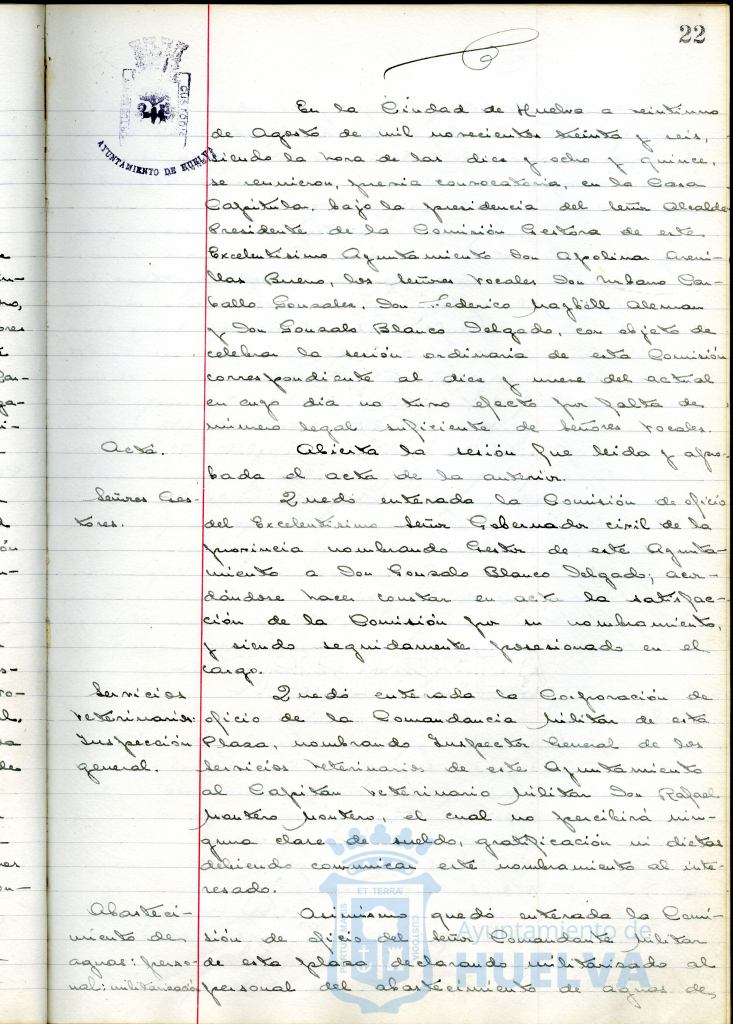 22
AYUNTAMIENTO DE HUELVA
En la Ciudad de Huelva a veintiuno
de Agosto de mil novecientos treinta y seis,
siendo la hora de las diez y ocho y quince,
se reunieron, previa convocatoria, en la Casa
Capitular, bajo la presidencia del Señor Alcalde
Presidente de la Comisión Gestora de este
Excelentísimo Ayuntamiento Don Apolinar Areni-
llas Bueno, los Señores Vocales Don Urbano Car-
ballo Gonzalez, Don Federico Aleman
y Don Gonzalo Blanco Delgado, con objeto de
celebrar la sesión ordinaria de esta Comisión
correspondiente al diez y nueve del actual
en cuyo dia no tuvo efecto por falta de
número legal suficiente de Señores Vocales.
Acta.
Abierta la sesión fue leida y apro-
bada el acta de la anterior.
Señores Ges-
tores.
Quedó enterada la Comisión de oficio
del Excelentísimo Señor Gobernador civil de la
provincia nombrando Gestor de este Ayunta-
miento a Don Gonzalo Blanco Delgado; acor-
dándose hacer constar en acta la satisfac-
ción de la Comisión por su nombramiento,
y siendo seguidamente posesionado en el
cargo.
Servicios
Veterinarios:
Inspección
general.
Quedó enterada la Corporación de
oficio de la Comandancia Militar de esta
Plaza, nombrando Inspector General de los
Servicios Veterinarios de este Ayuntamiento
al Capitán Veterinario Militar Don Rafael
Montero Montero, el cual no percibirá nin-
guna clase de sueldo, gratificación ni dietas
debiendo comunicar este nombramiento al inte-
resado.
Abasteci-
miento de
aguas: perso-
nal: militarización
Asimismo quedó enterada la Comi-
sión de oficio del Señor Comandante Militar
de esta plaza declarando militarizado al
personal del abastecimiento de aguas de
ET TERRÆ
CUSTODIA
Ayuntamiento de
HUELVA